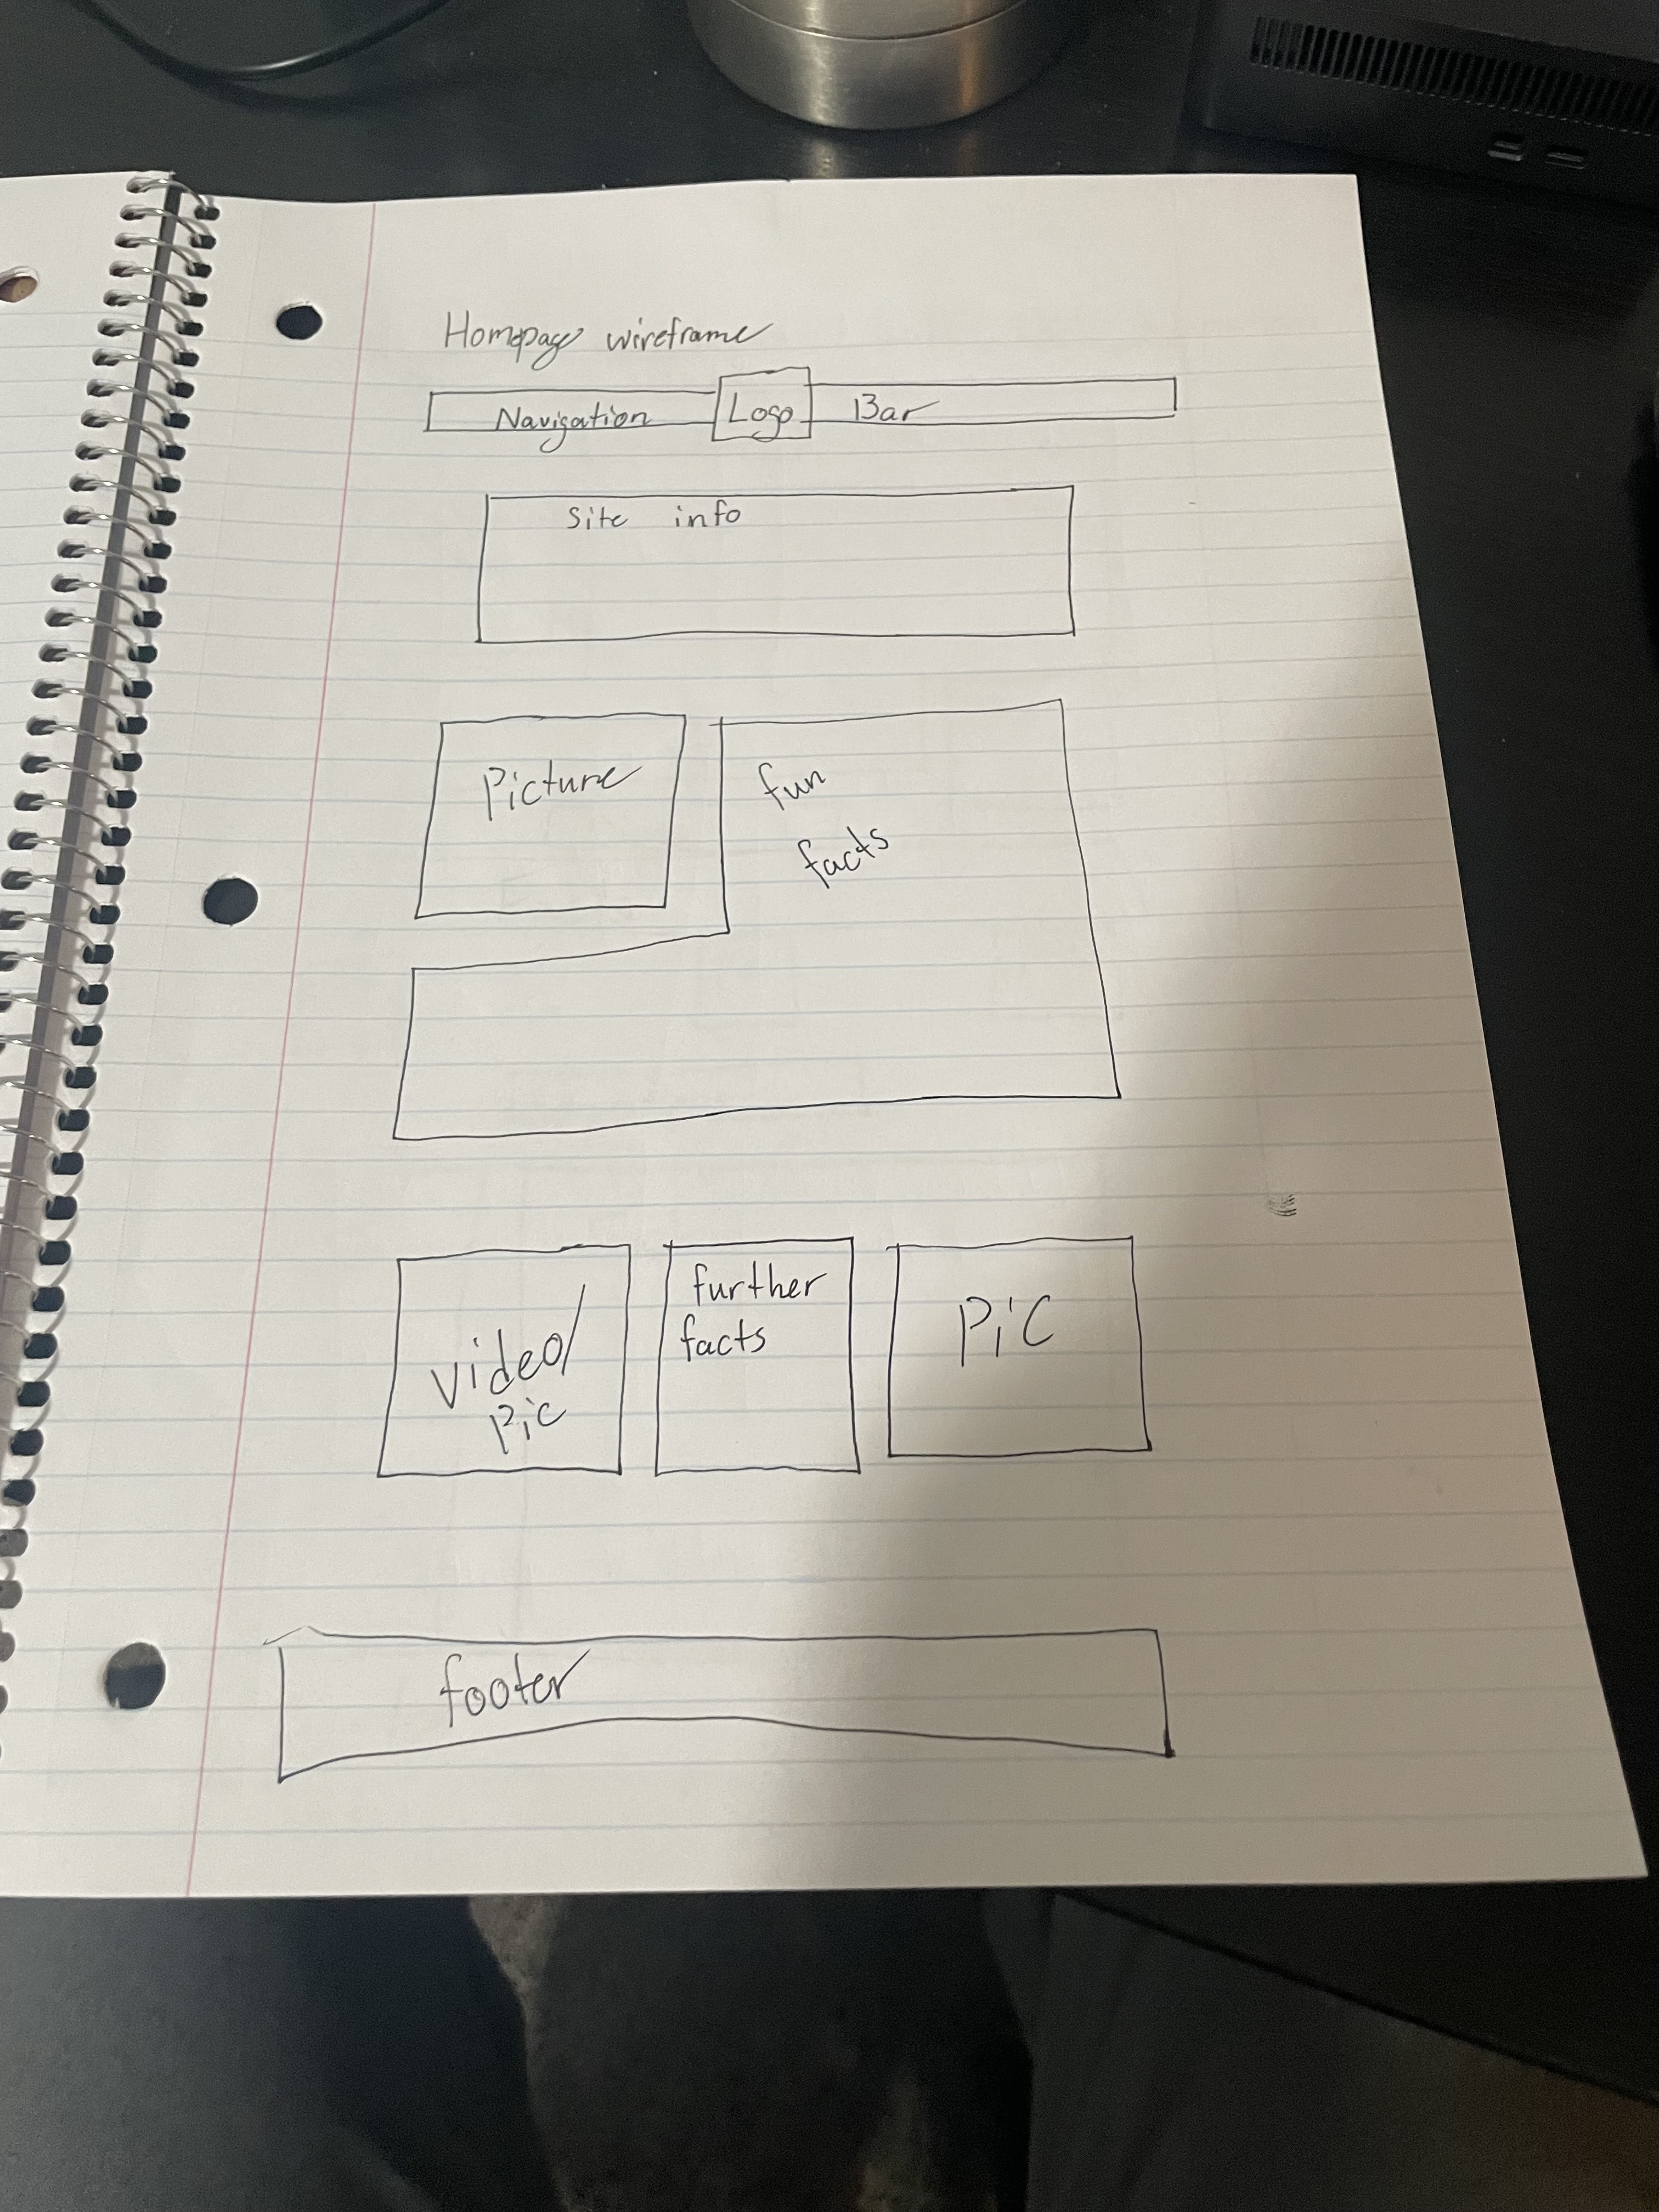 Homepage wireframe
Navigation Logo Bar
Site info
Picture
fun
facts
video/
pic
further
facts
PiC
footer